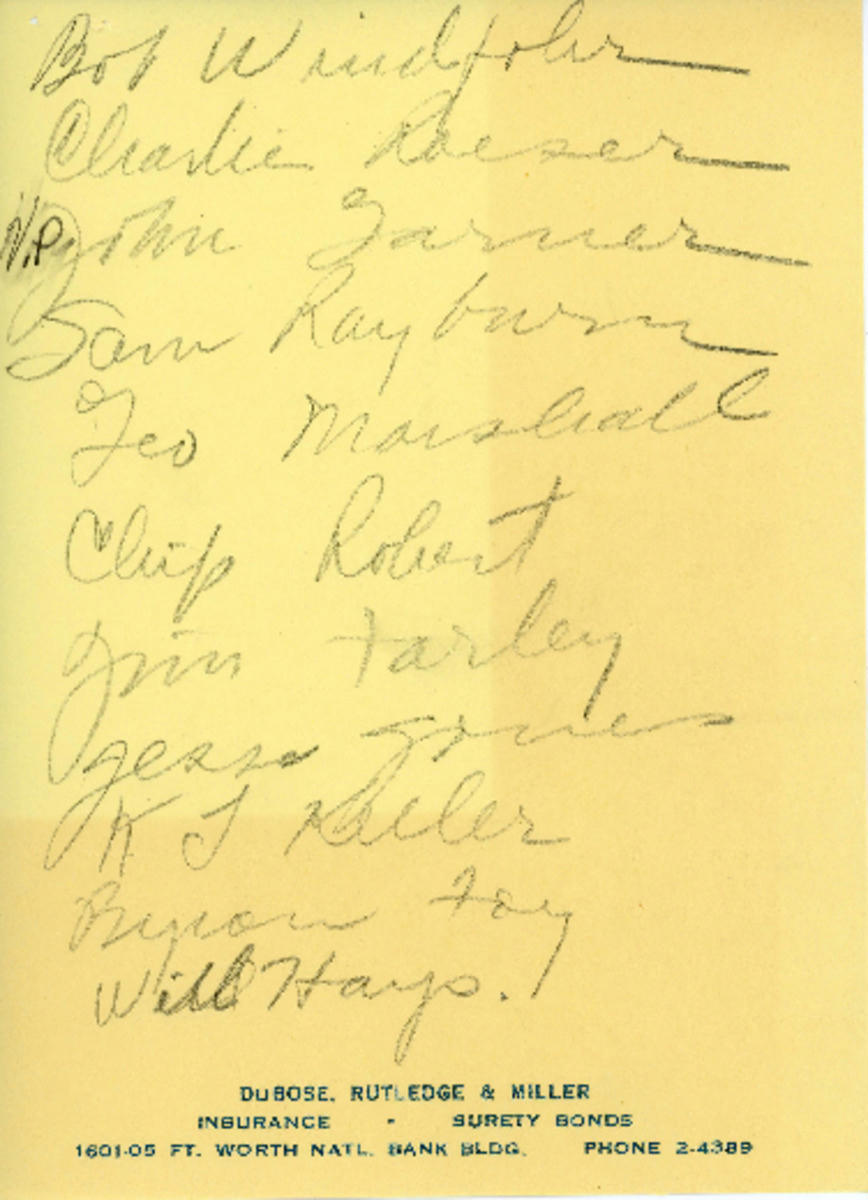 Bob Windfohr
Charlie Roeser
V.P. John Garner
Sam Rayburn
Geo Marshall
Chip Robert
Jim Farley
Jesse Jones
K T Keller
Byron Foy
Will Hays.
DUBOSE, RUTLEDGE & MILLER
INSURANCE - SURETY BONDS
1601-05 FT. WORTH NATL. BANK BLDG. PHONE 2-4389